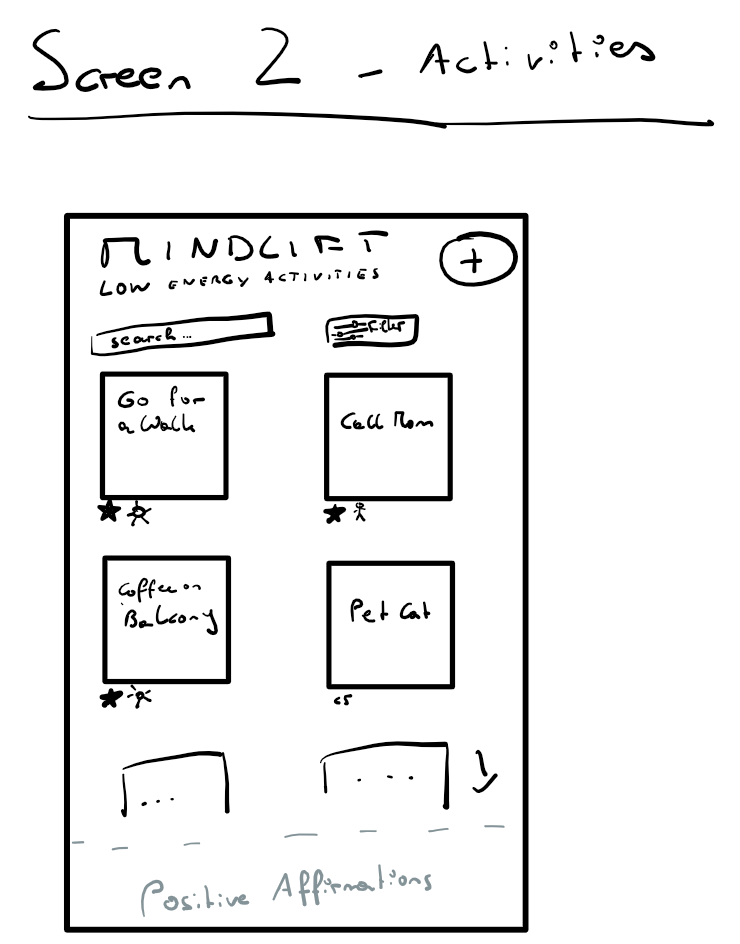 Screen 2 - Activities
MINDLIFT
LOW ENERGY ACTIVITIES
+
search...
Filter
Go for
a Walk
Call Mom
Coffee on
Balcony
Pet Cat
...
...
Positive Affirmations